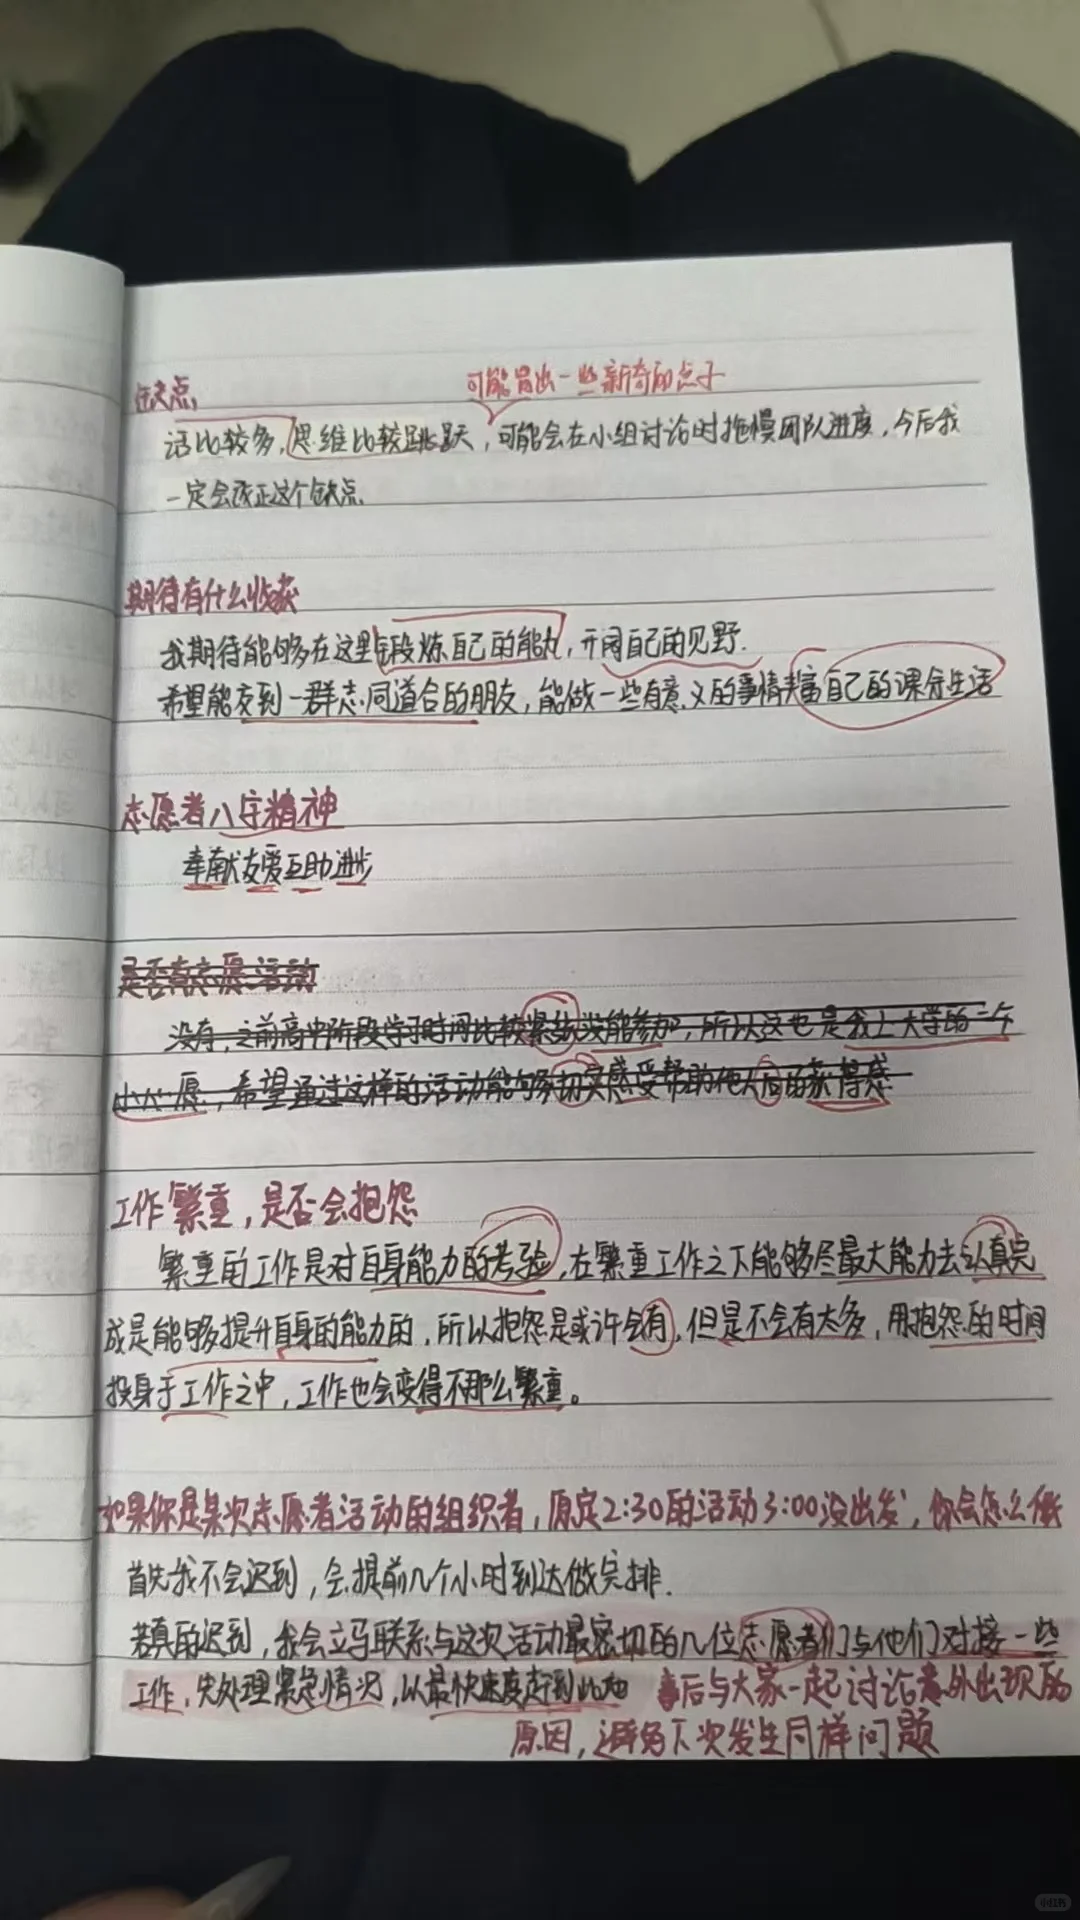 缺点
可能冒出一些新奇的点子
话比较多,思维比较跳跃,可能会在小组讨论时拖慢团队进度,今后我
一定会改正这个缺点.
期待有什么收获
我期待能够在这里锻炼自己的能力,开阔自己的见野.
希望能交到一群志同道合的朋友,能做一些有意义的事情丰富自己的课余生活
志愿者八字精神
奉献友爱互助进步
是否有志愿活动
没有,之前高中阶段学习时间比较紧没能参加,所以这也是我上大学的一个
小心愿,希望通过这样的活动能够切实感受帮助他人后的获得感
工作繁重,是否会抱怨
繁重的工作是对自身能力的考验,在繁重工作之下能够尽最大能力去认真完
成是能够提升自身的能力的,所以抱怨是或许会有,但是不会有太多,用抱怨的时间
投身于工作之中,工作也会变得不那么繁重。
如果你是某次志愿者活动的组织者,原定2:30的活动3:00没出发,你会怎么做
首先我不会迟到,会提前几个小时到达做安排.
若真的迟到,我会立马联系与这次活动最密切的几位志愿者们与他们对接一些
工作,先处理紧急情况,以最快速度赶到此地 事后与大家一起讨论意外出现的
原因,避免下次发生同样问题